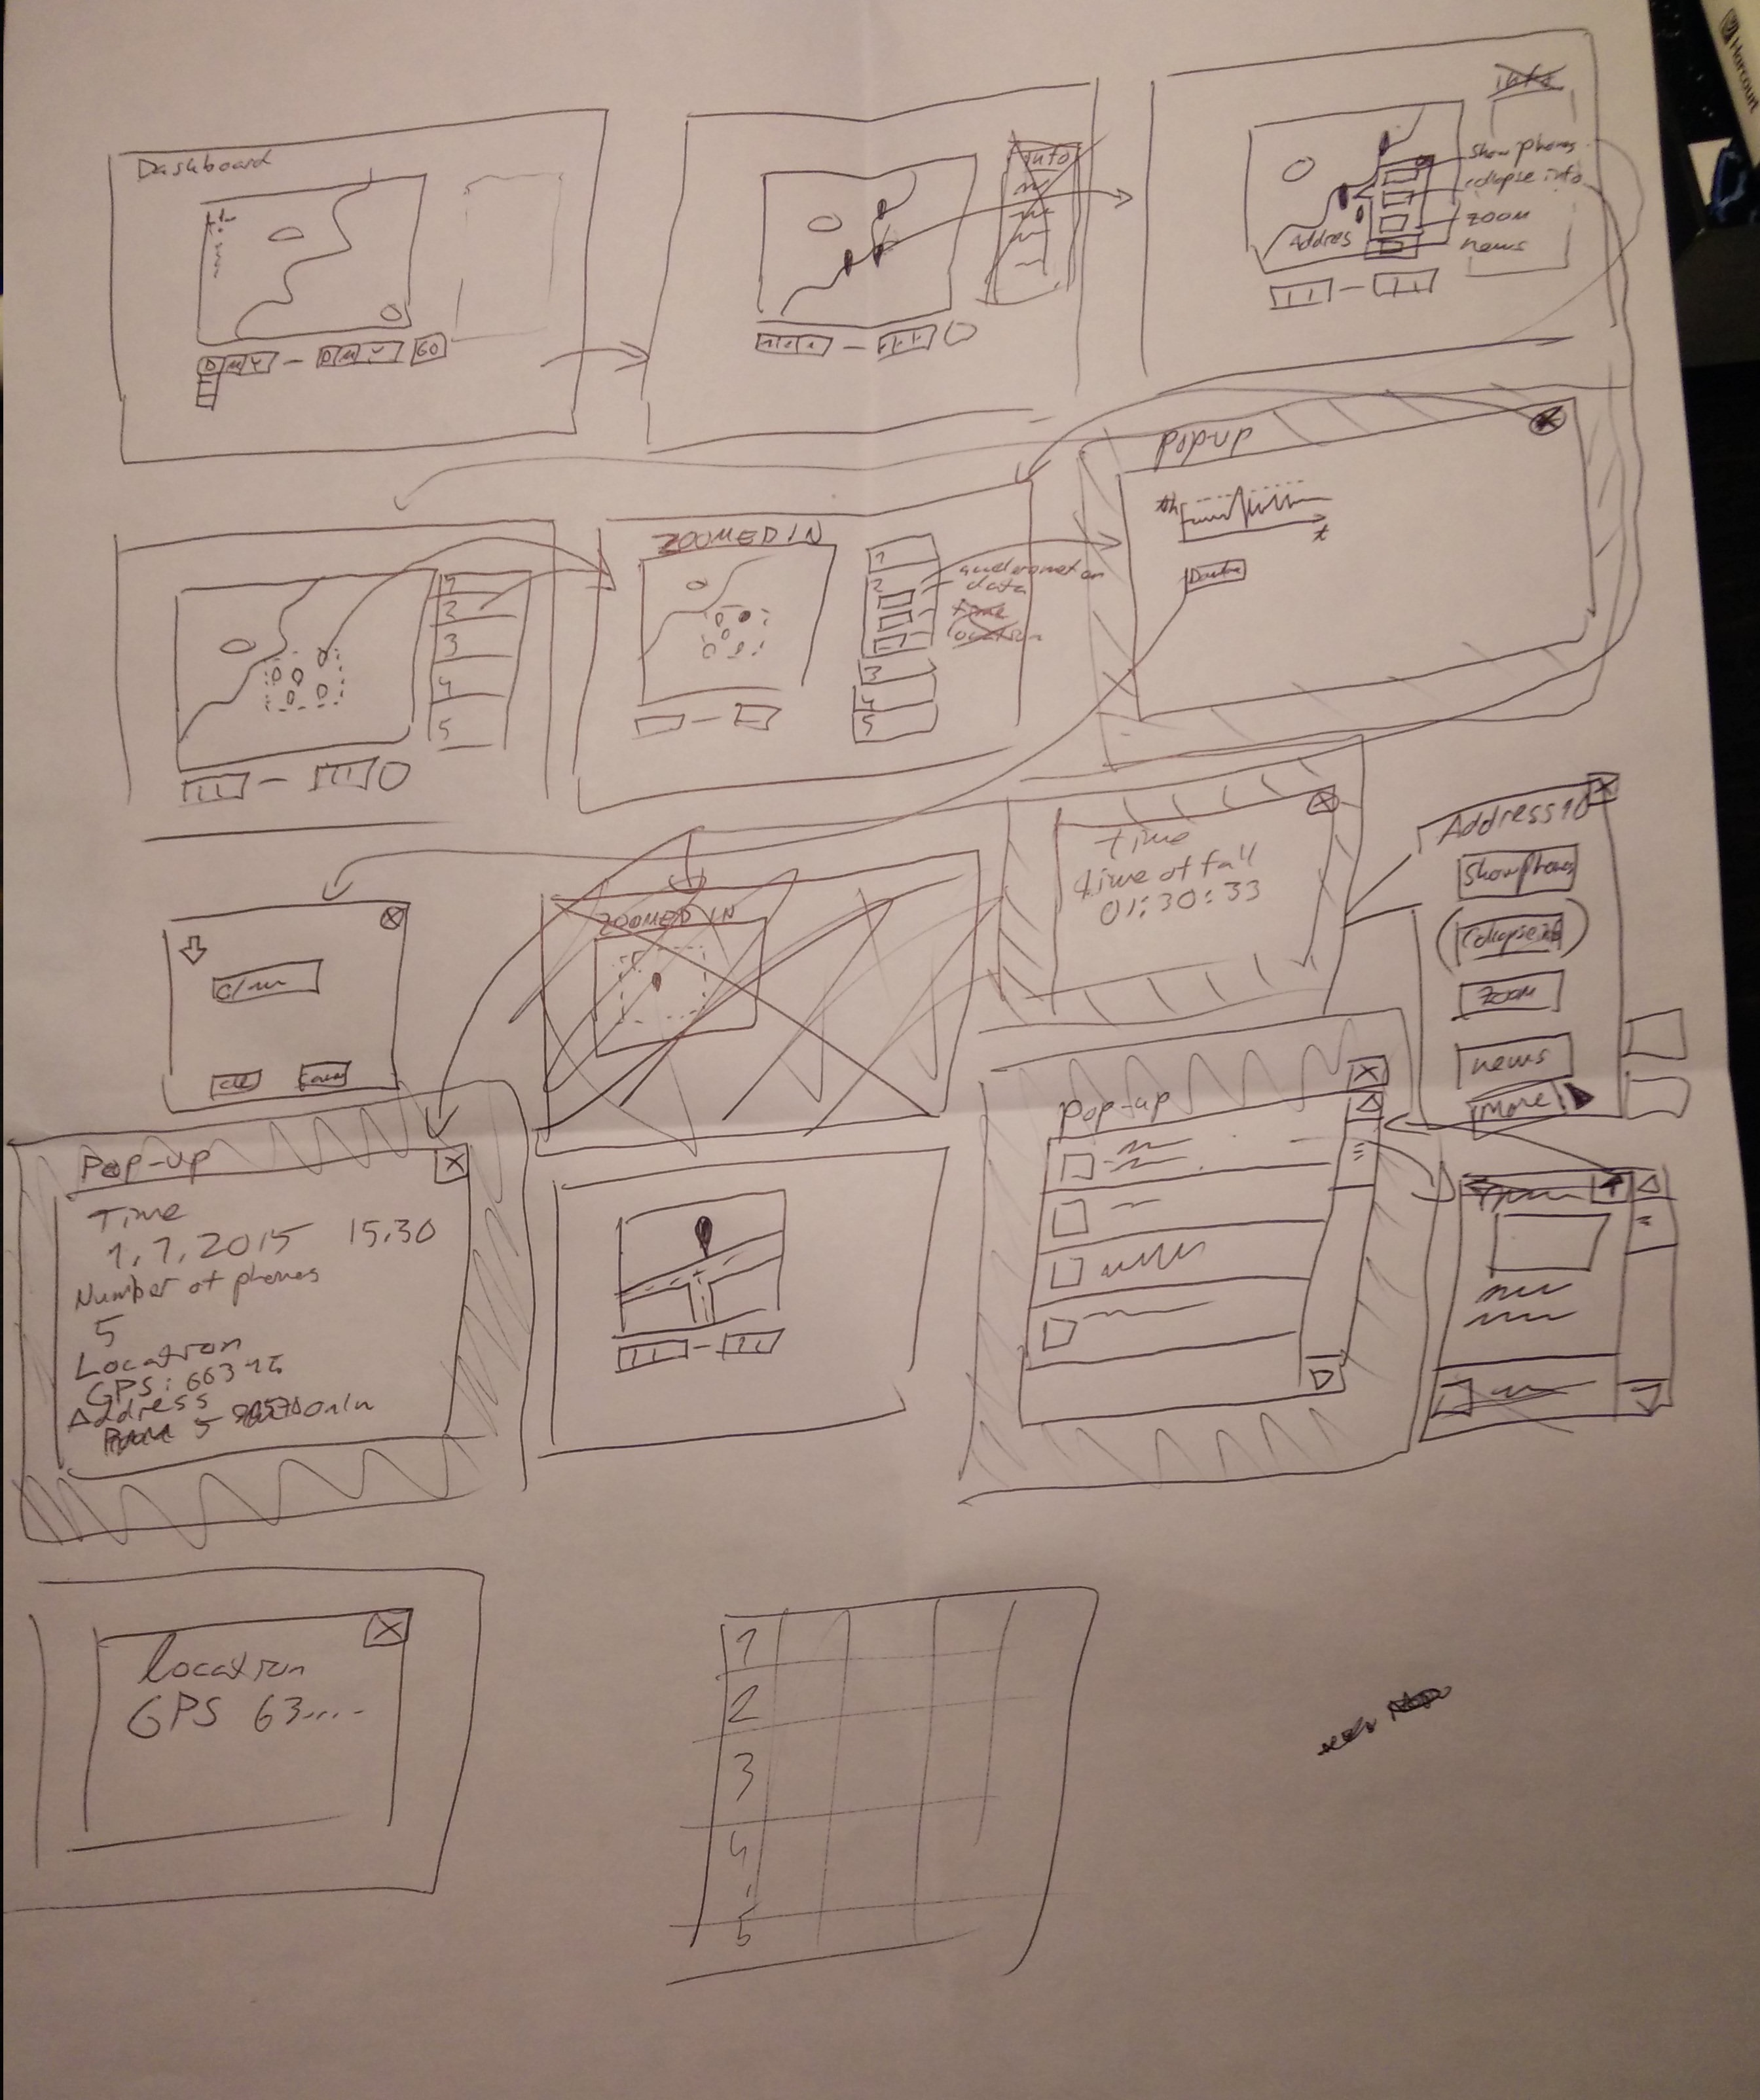 Harcourt
info
Dashboard
info
show phones
collapse info
zoom
news
Addres
D M Y - D M Y GO
Pop-up
ZOOMED IN
1
2
3
4
5
1
2
3
4
5
accelerometer
data
time
location
t
Time
time of fall
01:30:33
Address 10
show phones
(collapse info)
zoom
news
more
ZOOMED IN
c/
Pop-up
Time
1.7.2015 15.30
Number of phones
5
Location
GPS:
Address
Pop-up
location
GPS 63....
1
2
3
4
5